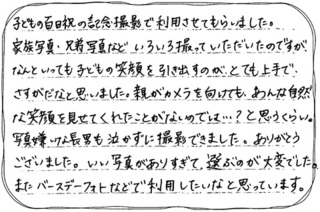 子どもの百日祝の記念撮影で利用させてもらいました。
家族写真・兄着写真など いろいろ撮っていただいたのですが、
なんといっても子どもの笑顔を引き出すのが、とても上手で、
さすがだなと思いました。親がカメラを向けても、あんな自然
な笑顔を見せてくれたことがないのでは…？と思うくらい。
写真嫌いな長男も泣かずに撮影できました。ありがとう
ございました。いい写真がありすぎて、選ぶのが大変でした。
またバースデーフォトなどで利用したいなと思っています。